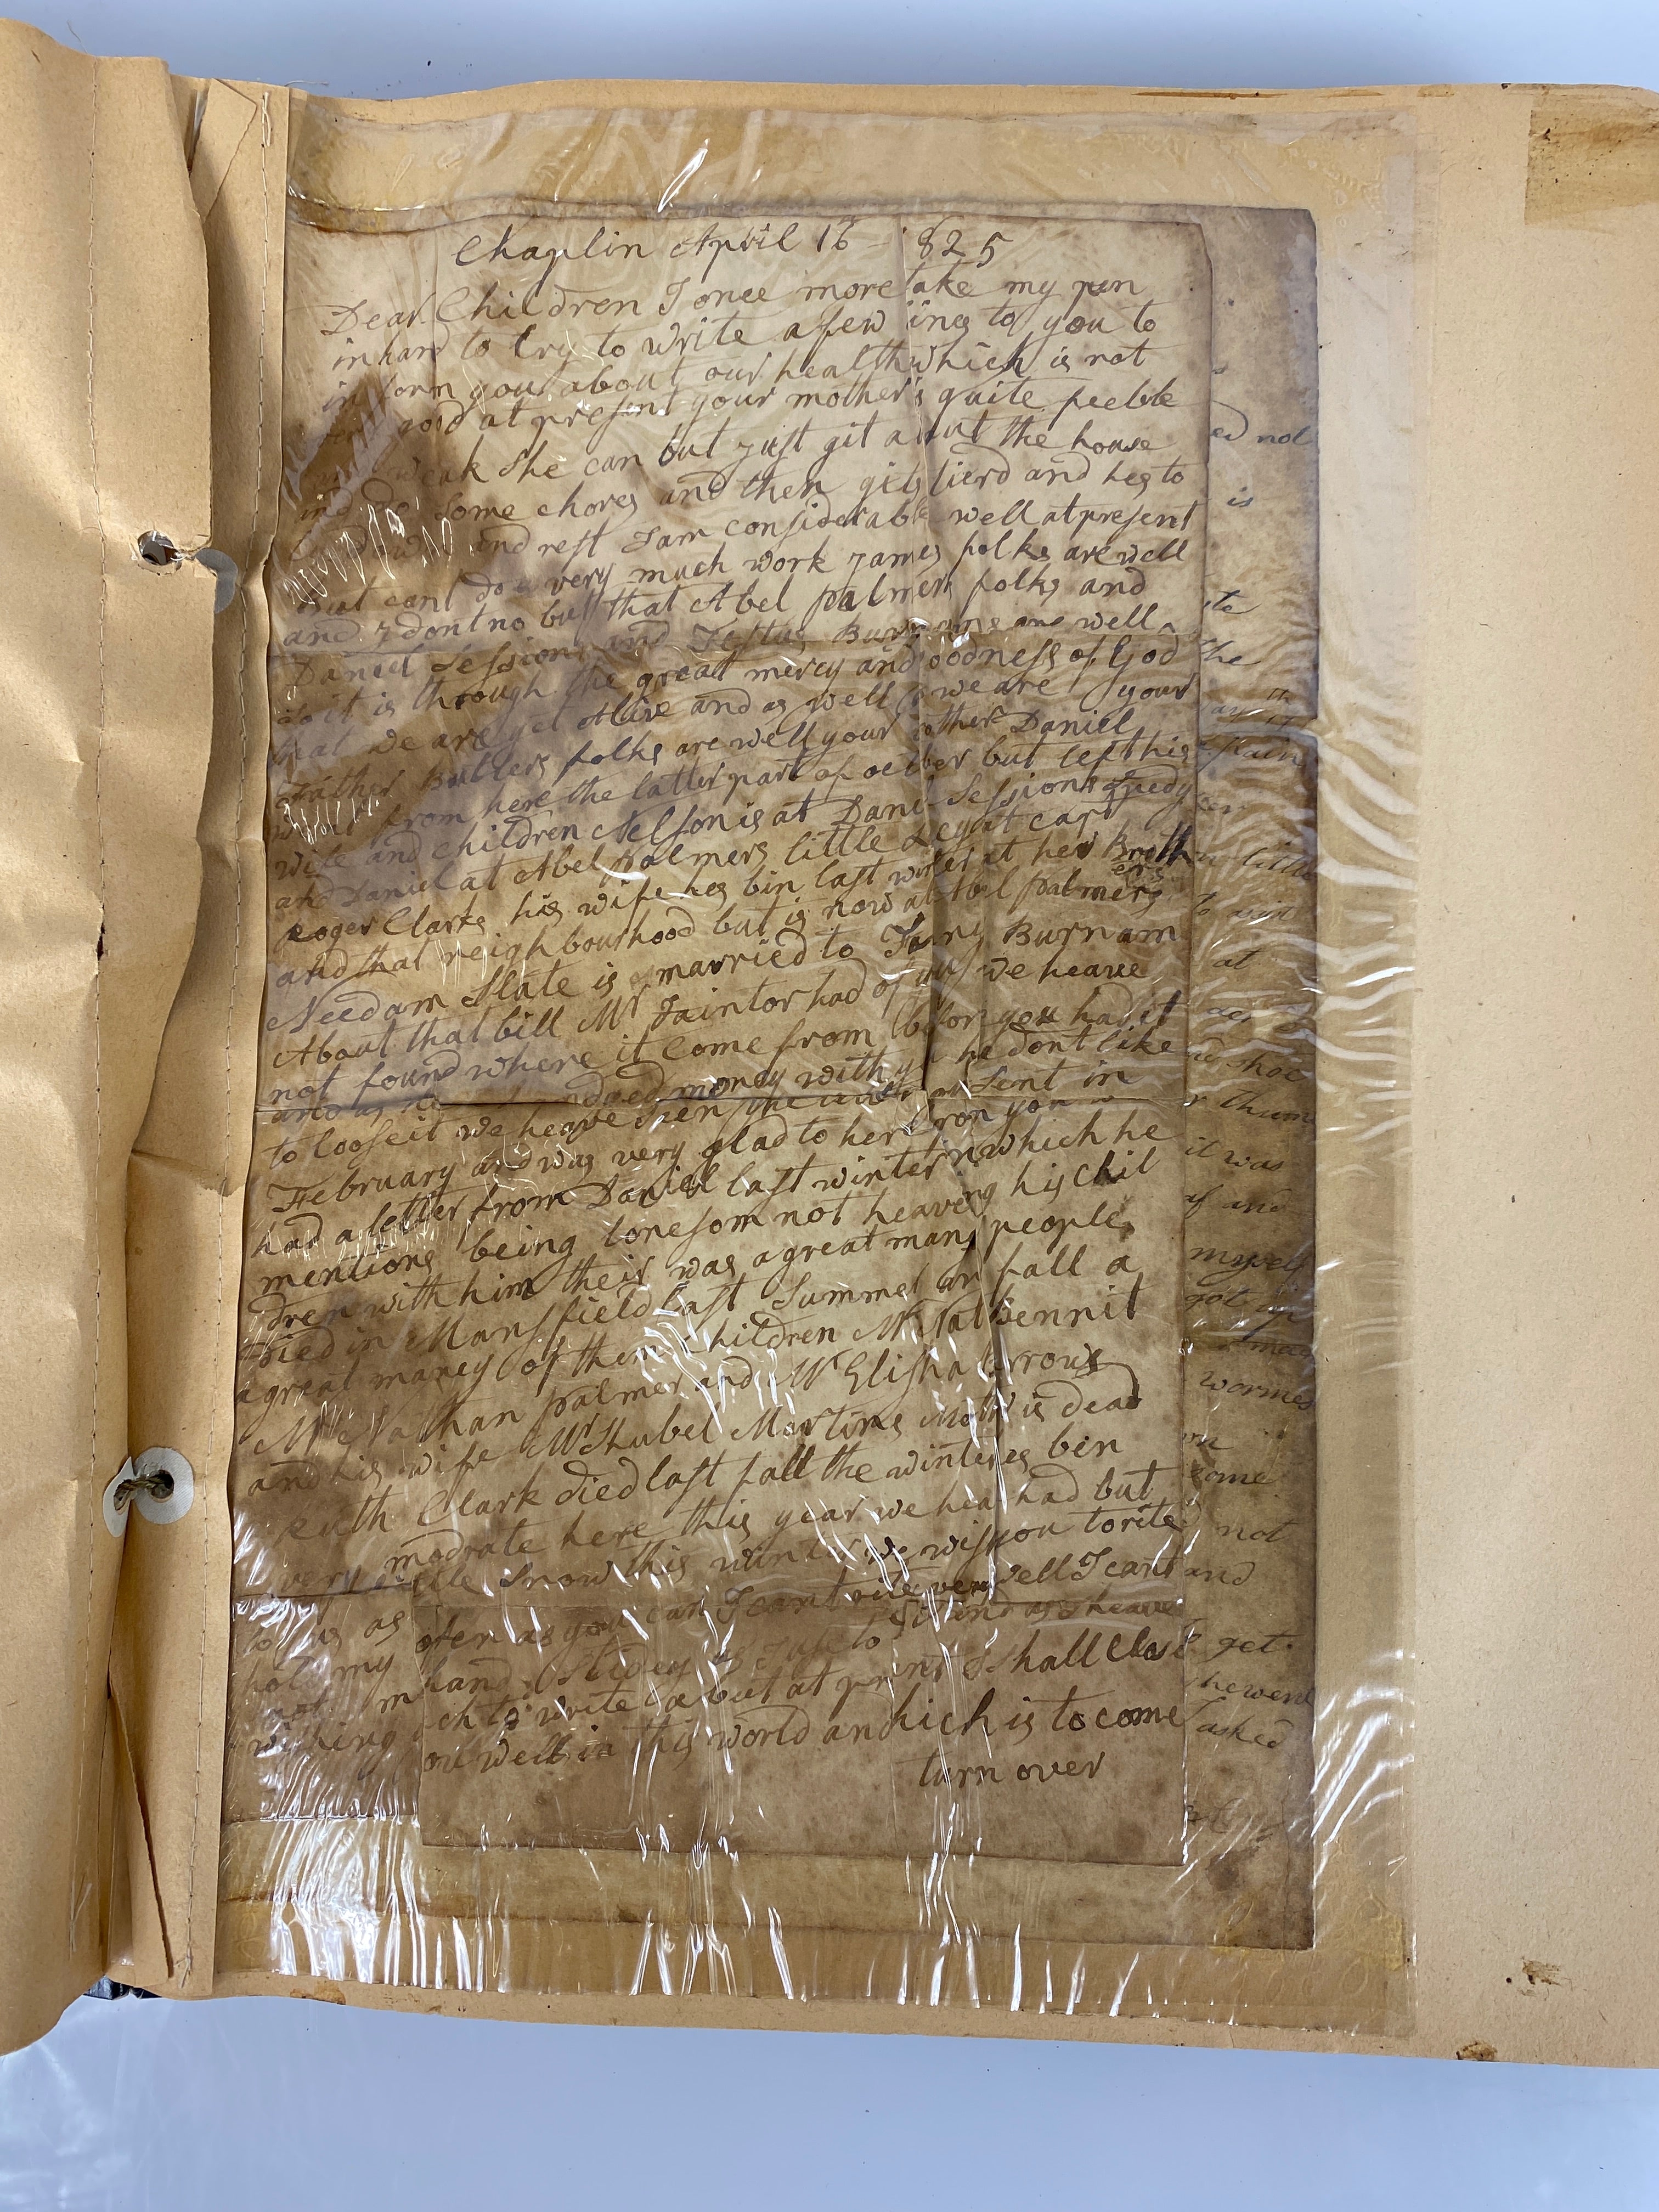 Chaplin April 16 825
Dear Children I once more take my pen
in hand to try to write a few ines to you to
inform you about our health which is not
good at present your mother is quite feeble
weak She can but just git about the house
some chores and then gits tierd and hes to
and rest I am considerable well at present
but cant do very much work James folks are well
and I dont no but that Abel palmers folks and
Daniel Sessions and Festus Burnams are well
so it is through the great mercy and oodness of God
that we are yet Alive and as well as we are your
Father Butlers folks are well your other Daniel
went from here the latter part of octber but left his
wife and children Nelson is at Danl Sessions
and Daniel at Abel palmers little at
Roger Clarks his wife hes bin last winter at her Broth
ers
and that neighbourhood but is now at Abel palmers
Needam Slate is married to Burnam
About that bill Mr Taintor had of you we heave
not found where it Come from before you had it
and as he money with you he dont like
to loose it we heave Seen the letter you Sent in
February and was very glad to her from you
had a letter from Daniel last winter in which he
mentions being lonesom not heaveng his Chil
dren with him their was a great many people
Died in Mansfield last Summer or fall a
a great maney of them Children Mr Nat Bennit
Mr Nathan palmer and Mr Elisha
and his wife Mr Shubel Martins Mother is dead
Ruth Clark died last fall the winter es bin
very modrate here this year we hea had but
little Snow this winter we wis you to rite
to us as ofen as you can I cant rite very well I cant
hol my hand Stidey as I use to and as I heave
not m ch to write a but at prent I shall Clos
wishing ou well in this world and hich is to come
turn over
ed not
is
ite
the
little
at
thum
it was
and
myself
got up
wormes
come
not
and
get
he went
asked